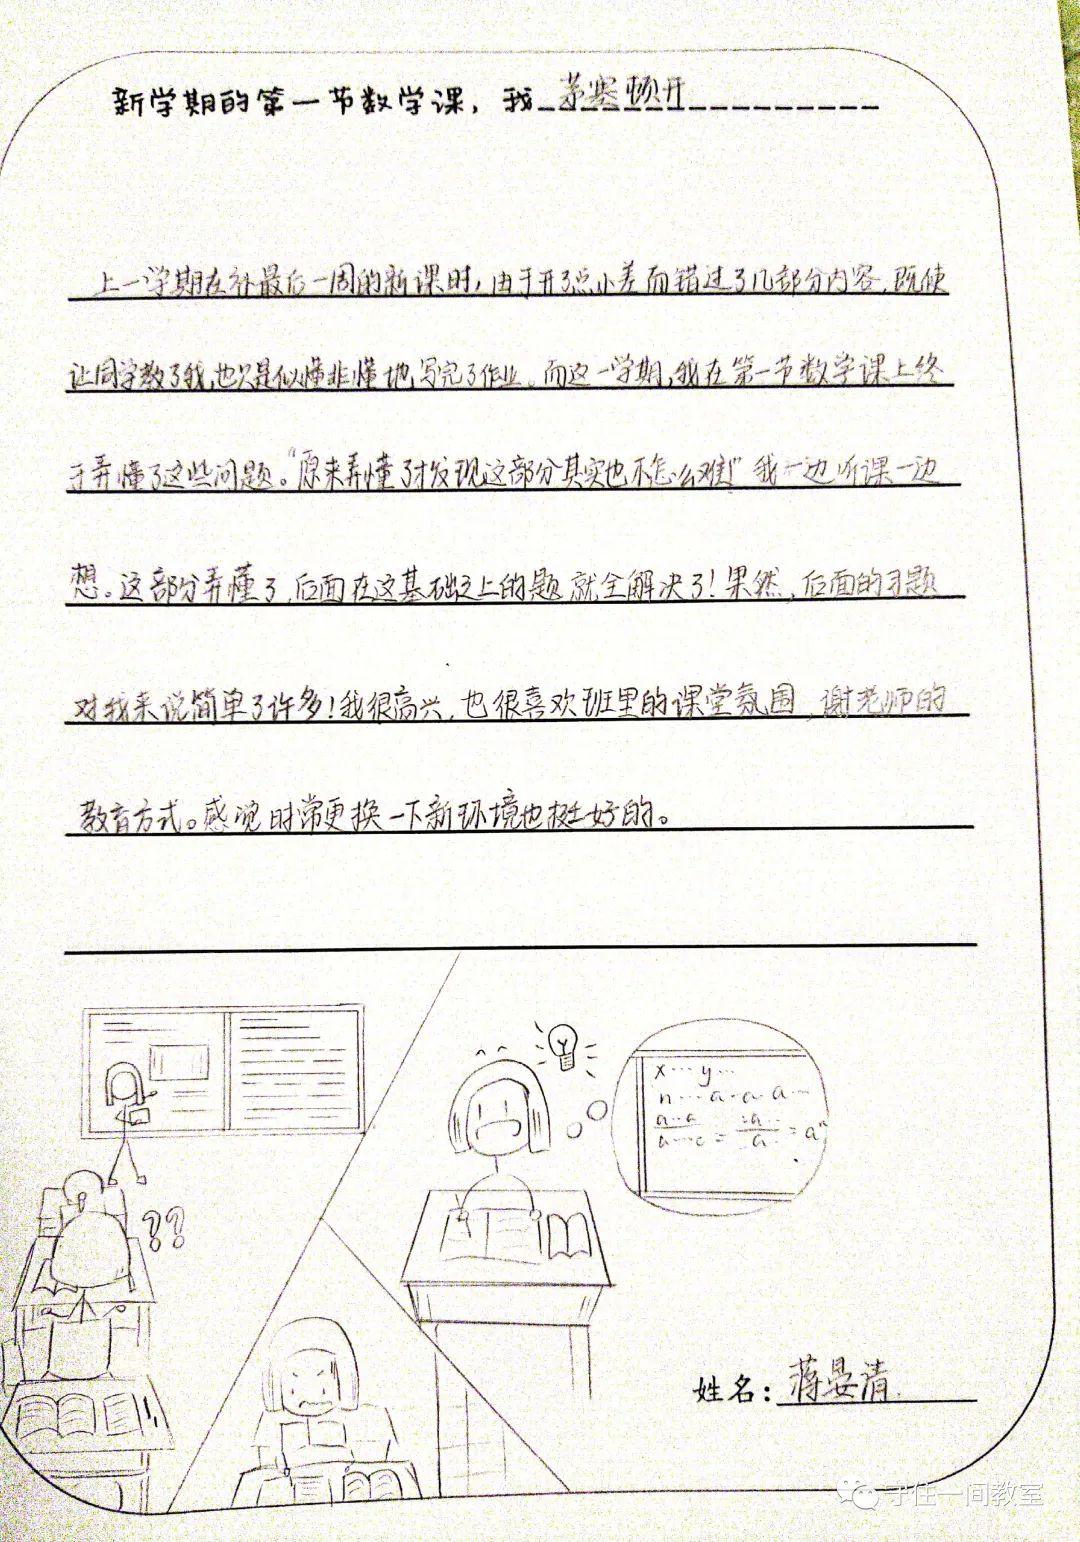 新学期的第一节数学课，我茅塞顿开
上一学期在补最后一周的新课时，由于开了点小差而错过了几部分内容，既使
让同学教了我，也只是似懂非懂地写完了作业。而这一学期，我在第一节数学课上终
于弄懂了这些问题。“原来弄懂了才发现这部分其实也不怎么难！”我一边听课一边
想。这部分弄懂了，后面在这基础之上的题就全解决了！果然，后面的习题
对我来说简单了许多！我很高兴，也很喜欢班里的课堂氛围，谢老师的
教育方式。感觉时常更换一下新环境也挺好的。
x…y…
??
姓名：蒋晏清
守住一间教室